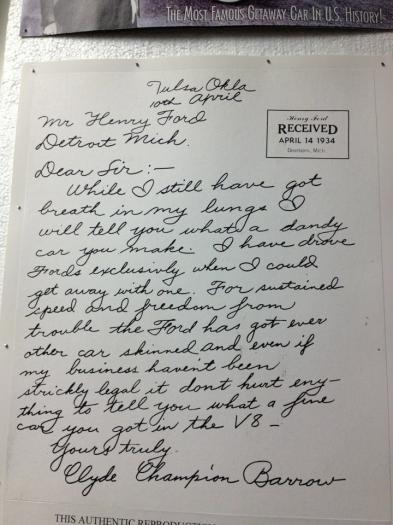 THE MOST FAMOUS GETAWAY CAR IN U.S. HISTORY!
Tulsa Okla
10th April
Mr Henry Ford
Detroit Mich.
Henry Ford
RECEIVED
APRIL 14 1934
Dearborn, Mich.
Dear Sir:—
While I still have got
breath in my lungs I
will tell you what a dandy
car you make. I have drove
Fords exclusivly when I could
get away with one. For sustained
speed and freedom from
trouble the Ford has got ever
other car skinned and even if
my business haven't been
strickly legal it don't hurt eny-
thing to tell you what a fine
car you got in the V8 –
Yours truly
Clyde Champion Barrow
THIS AUTHENTIC REPRODUCTION